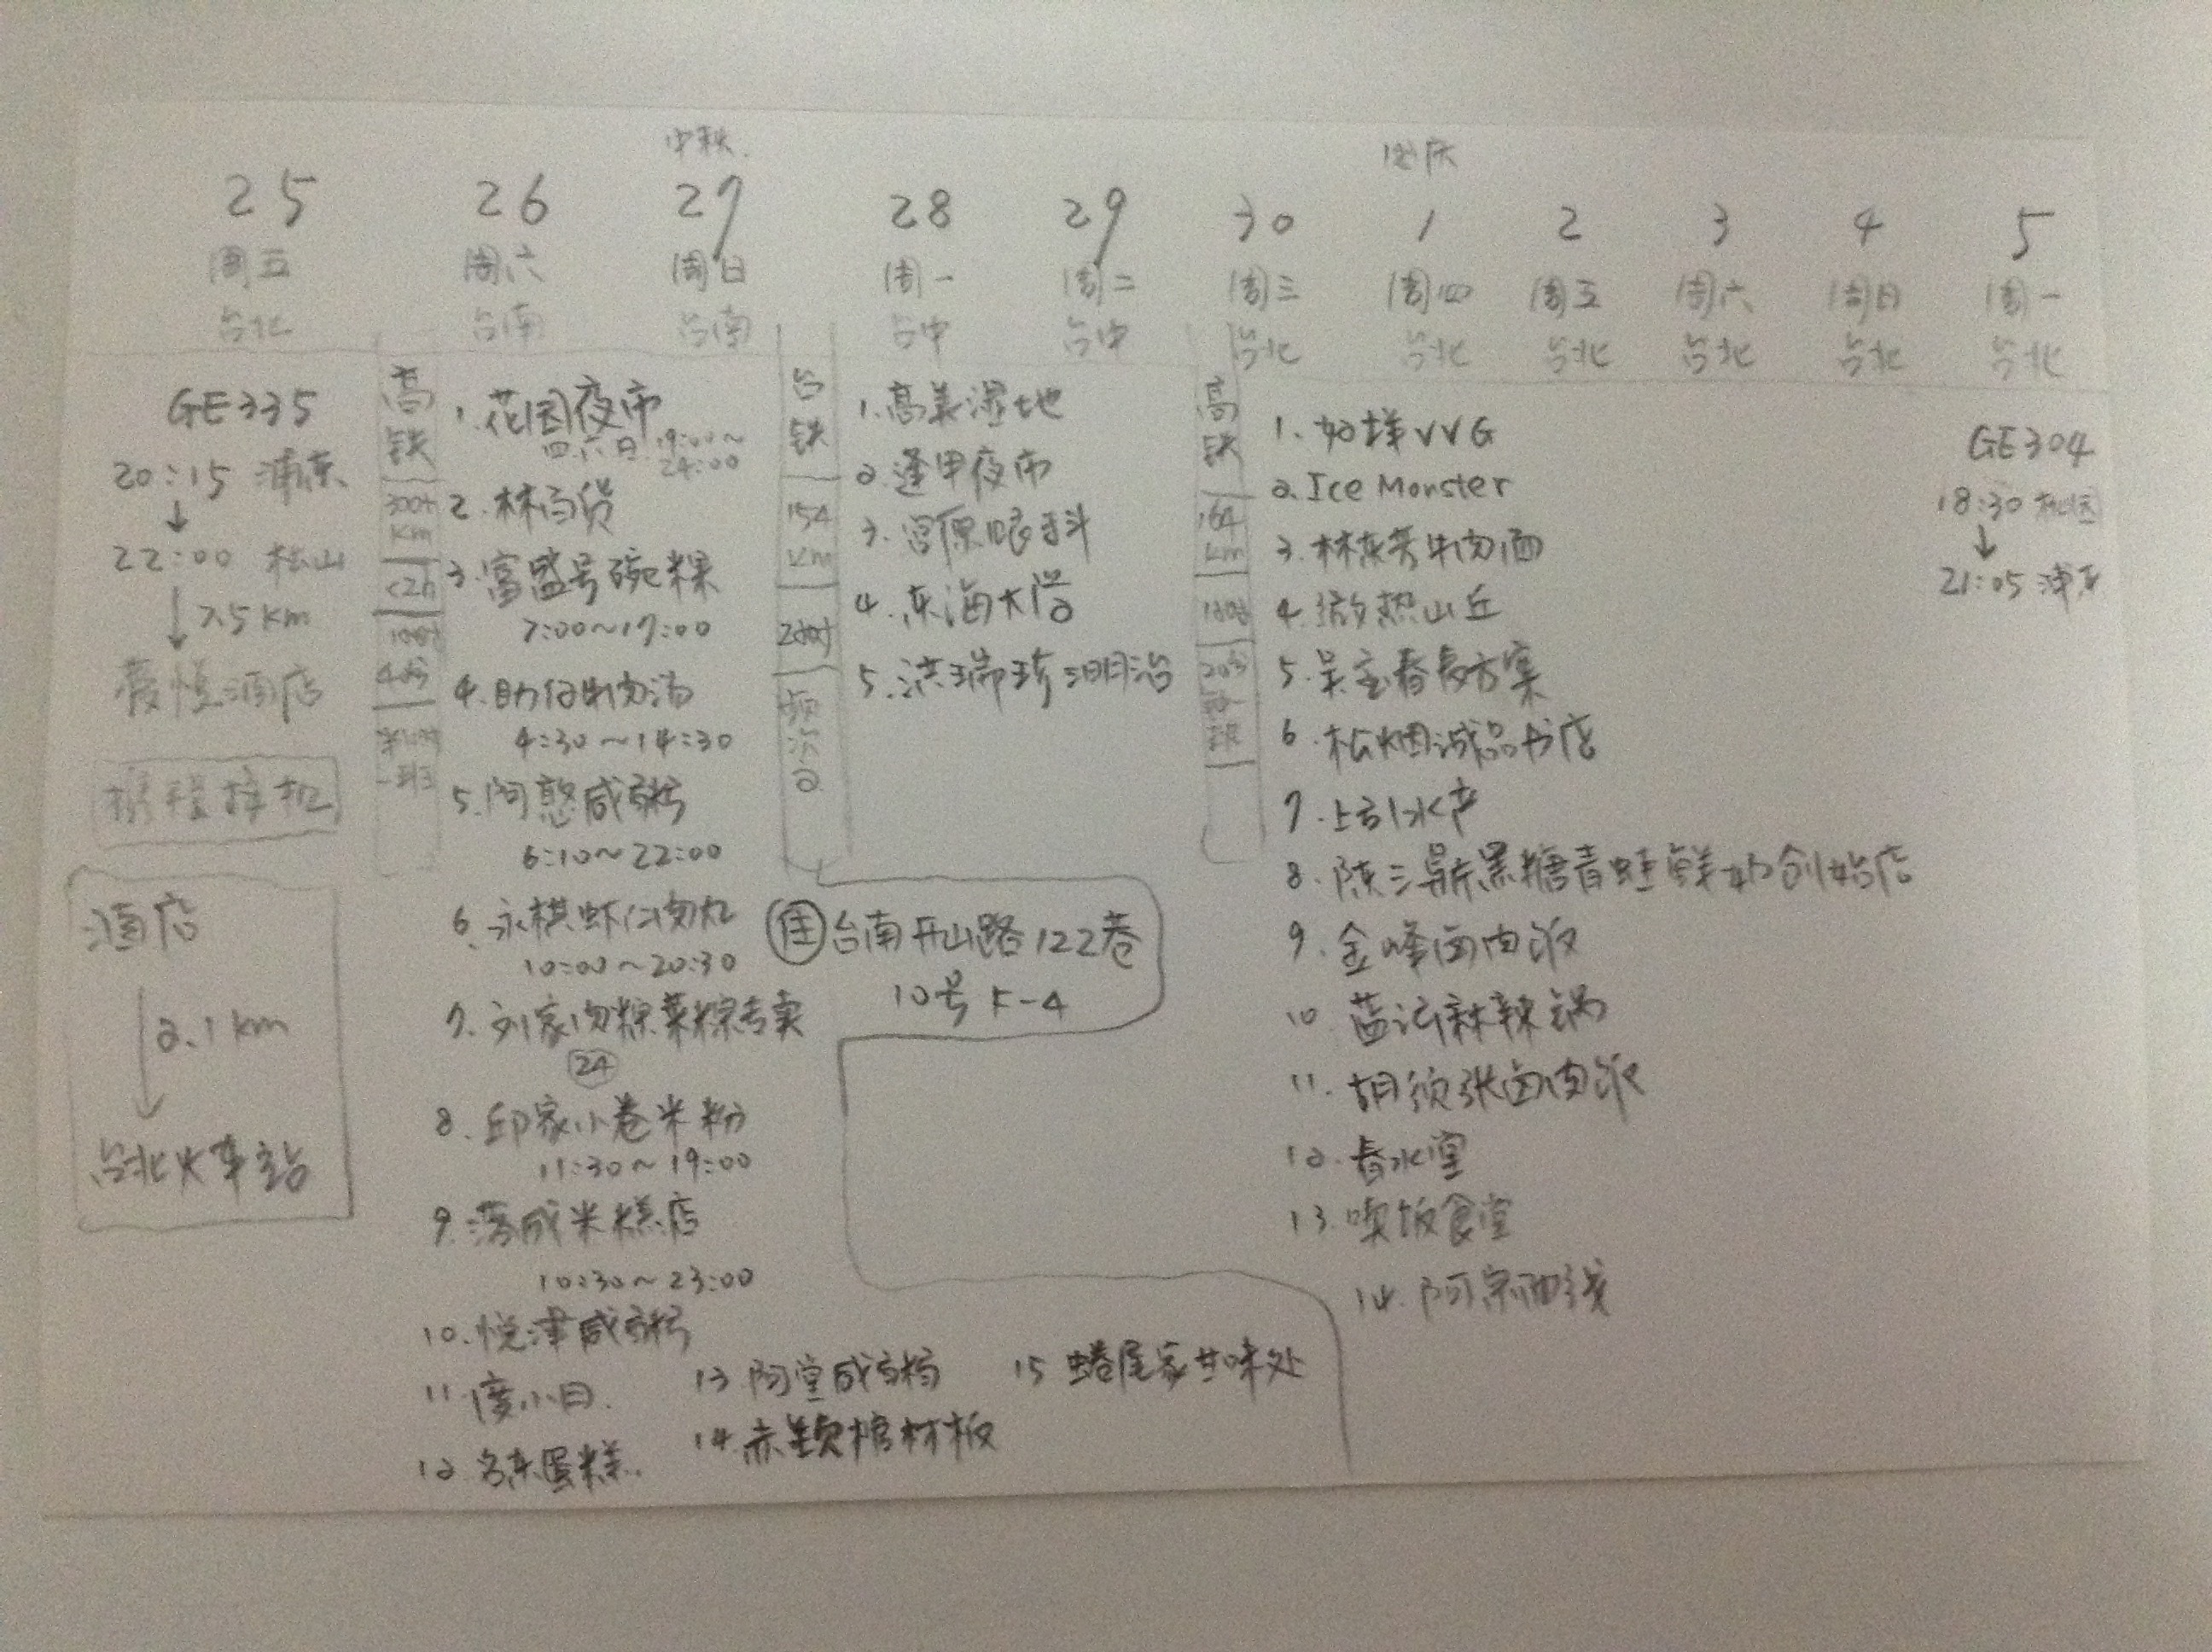 中秋
国庆
25 26 27 28 29 30 1 2 3 4 5
周五 周六 周日 周一 周二 周三 周四 周五 周六 周日 周一
台北 台南 台南 台中 台中 台北 台北 台北 台北 台北 台北
GE335
20:15 浦东
↓
22:00 松山
↓ 7.5km
酒店
携程接机
酒店
↓ 2.1km
台北火车站
高铁
300+
km
<2h
一班
1. 花园夜市
四六日 19:00~
24:00
2. 林百货
3. 富盛号碗粿
7:00~17:00
4. 助仔牛肉汤
4:30~14:30
5. 阿憨咸粥
6:10~22:00
6. 永棋虾仁肉丸
10:00~20:30
7. 刘家肉粽菜粽专卖
24
8. 邱家小卷米粉
11:30~19:00
9. 落成米糕店
10:30~23:00
10. 悦津咸粥
11 度小月.
12 名东蛋糕.
13 阿堂咸粥
14. 赤嵌棺材板
15 蜷尾家甘味处
台铁
154
km
2小时
频次
2
住 台南开山路122巷
10号 F-4
1. 高美湿地
2. 逢甲夜市
3. 宫原眼科
4. 东海大学
5. 洪瑞珍三明治
高铁
164
km
1小时
20分
1. 好样VVG
2. Ice Monster
3. 林东芳牛肉面
4. 微热山丘
5. 吴宝春麦方
6. 松烟诚品书店
7. 上引水产
8. 陈三鼎黑糖青蛙鲜奶创始店
9. 金峰卤肉饭
10. 蓝记麻辣锅
11. 胡须张卤肉饭
12. 春水堂
13. 喫饭食堂
14. 阿宗面线
GE304
18:30 桃园
↓
21:05 浦东